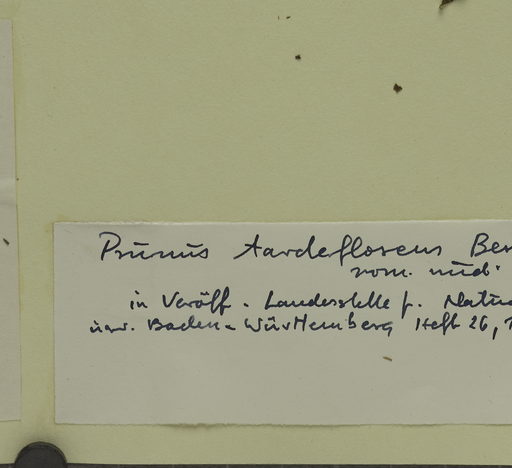 Prunus tardeflorens Ber
nom. nud.
in Veröff. Landesstelle f. Natu
usw. Baden-Württemberg Heft 26, 1